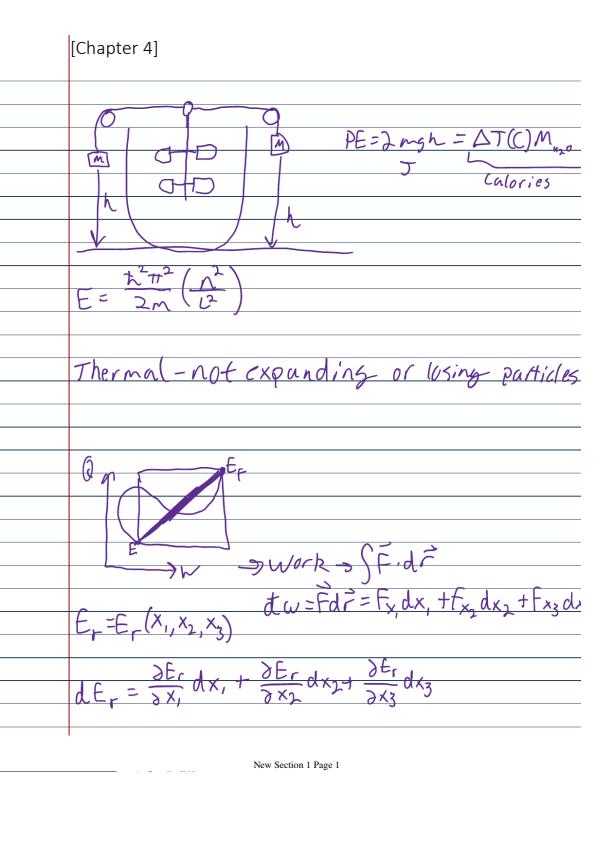 [Chapter 4]
PE = 2mgh = ΔT(C)M_H₂O
J
Calories
M
M
h
h
E = ħ²π²/2m (n²/L²)
Thermal - not expanding or losing particles
Q
E_F
E
W
→ Work → ∫F⃗·dr⃗
đw = F⃗dr⃗ = F_x₁dx₁ + F_x₂dx₂ + F_x₃dx
E_r = E_r(x₁,x₂,x₃)
dE_r = ∂E_r/∂x₁ dx₁ + ∂E_r/∂x₂ dx₂ + ∂E_r/∂x₃ dx₃
New Section 1 Page 1